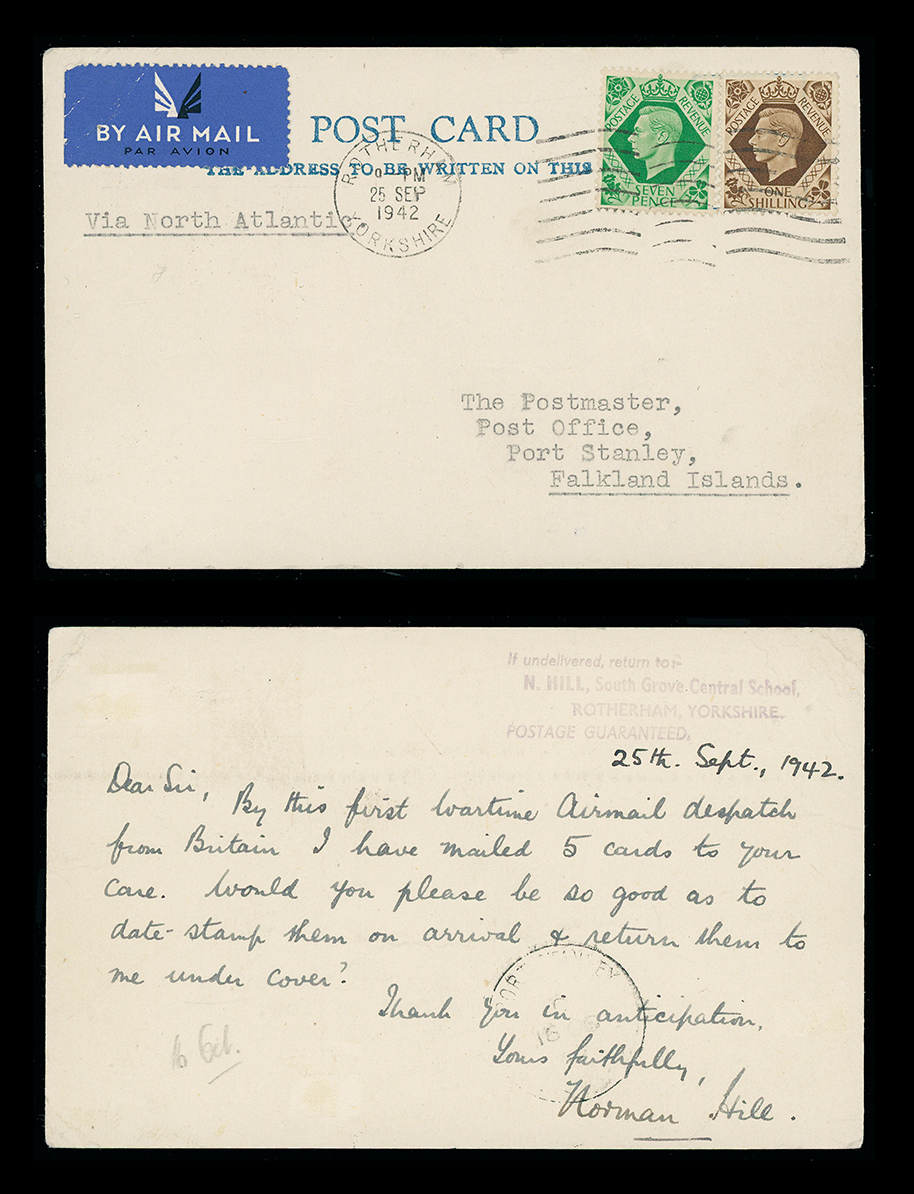 BY AIR MAIL
PAR AVION
POST CARD
THE ADDRESS TO BE WRITTEN ON THIS
Via North Atlantic
ROTHERHAM
PM
25 SEP
1942
YORKSHIRE
POSTAGE REVENUE
SEVEN
PENCE
POSTAGE REVENUE
ONE
SHILLING
The Postmaster,
Post Office,
Port Stanley,
Falkland Islands.
If undelivered, return to:-
N. HILL, South Grove Central School,
ROTHERHAM, YORKSHIRE.
POSTAGE GUARANTEED.
25th. Sept., 1942.
Dear Sir,
By this first wartime Airmail despatch
from Britain I have mailed 5 cards to your
care. Would you please be so good as to
date-stamp them on arrival & return them to
me under cover?
Thank you in anticipation,
Yours faithfully,
Norman Hill.
PORT STANLEY
16
16 Oct.